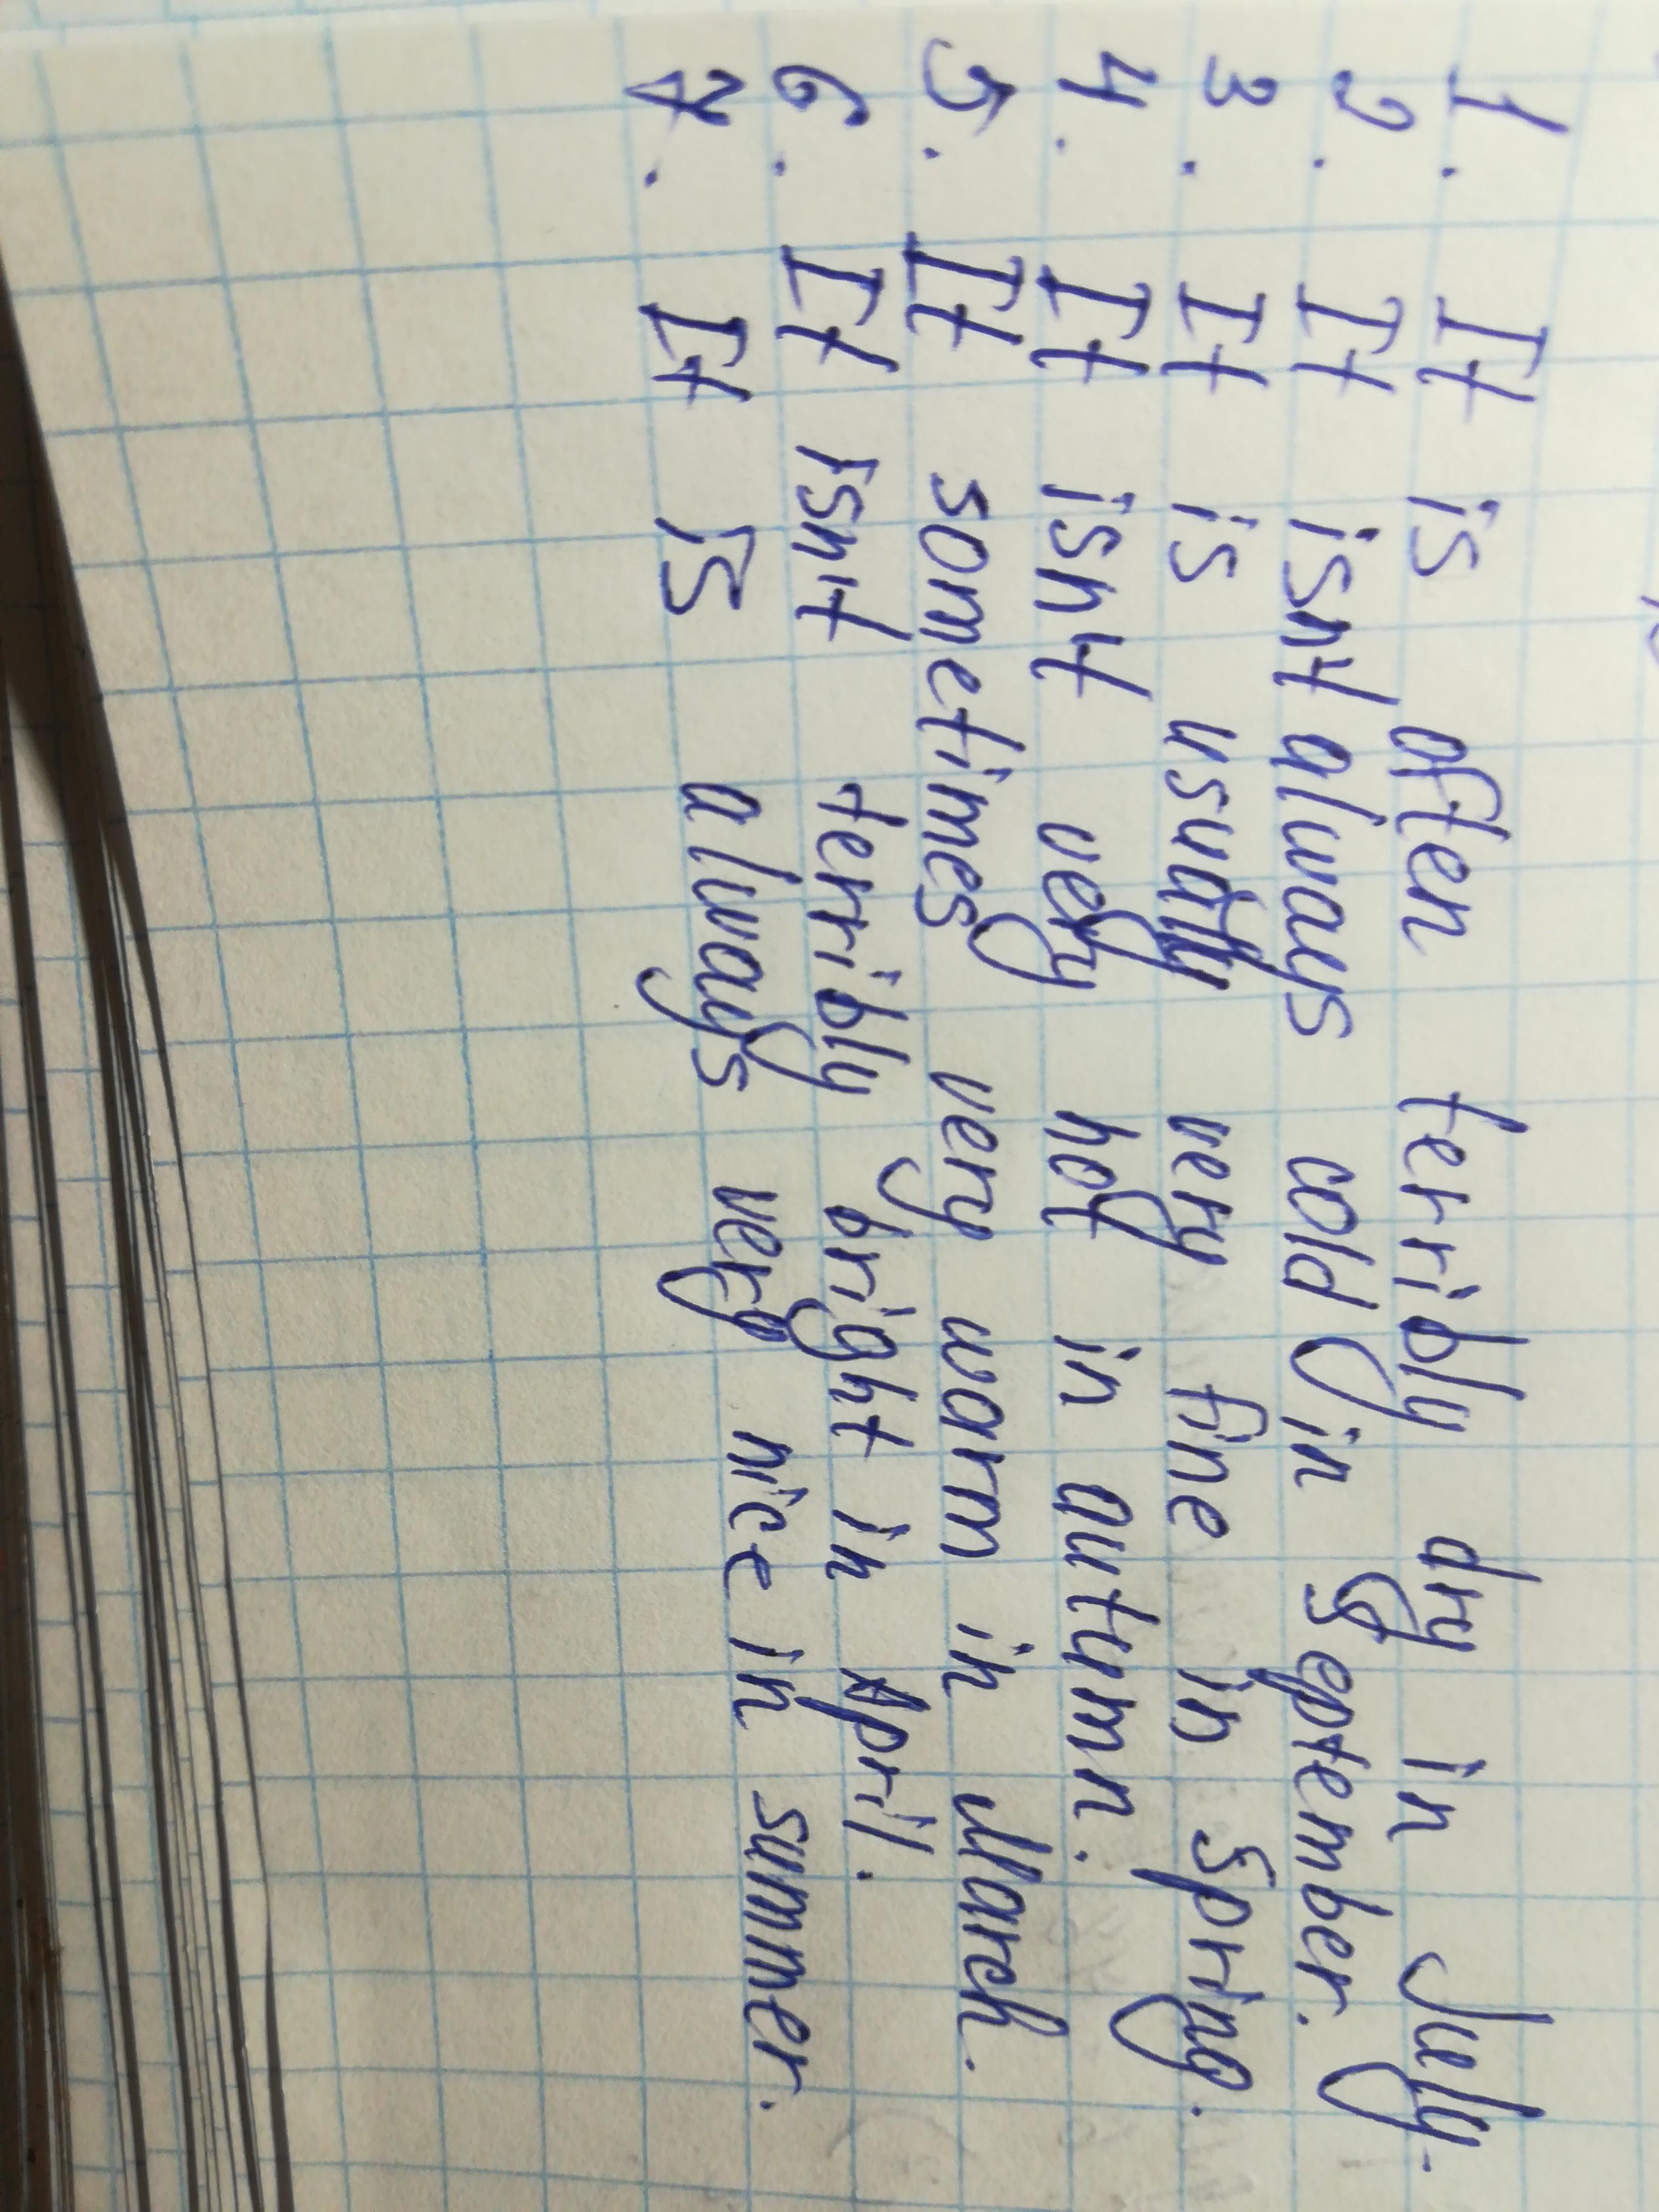 1. It is often terribly dry in July.
2. It isn't always cold in September.
3. It is usually very fine in spring.
4. It isn't very hot in autumn.
5. It sometimes very warm in March.
6. It isn't terribly bright in April.
7. It is always very nice in summer.